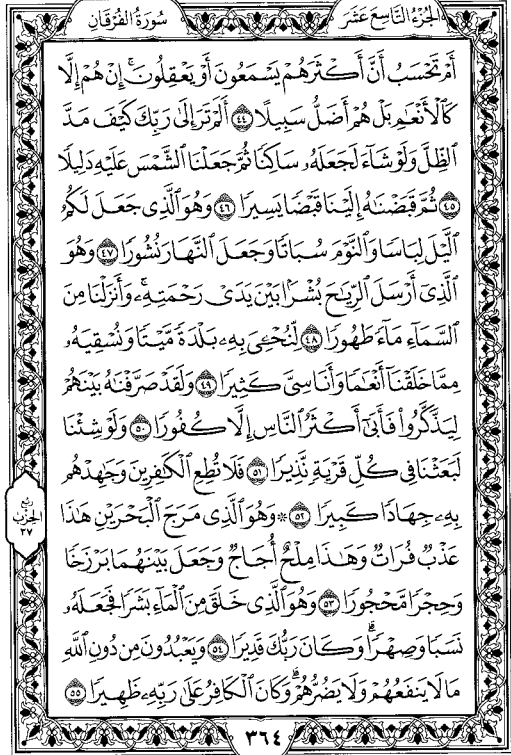 الجُزْءُ التَّاسِعَ عَشَرَ
سُورَةُ الفُرْقَانِ
أَمْ تَحْسَبُ أَنَّ أَكْثَرَهُمْ يَسْمَعُونَ أَوْ يَعْقِلُونَ ۚ إِنْ هُمْ إِلَّا
كَالْأَنْعَٰمِ بَلْ هُمْ أَضَلُّ سَبِيلًا ٤٤ أَلَمْ تَرَ إِلَىٰ رَبِّكَ كَيْفَ مَدَّ
الظِّلَّ وَلَوْ شَآءَ لَجَعَلَهُۥ سَاكِنًا ثُمَّ جَعَلْنَا الشَّمْسَ عَلَيْهِ دَلِيلًا
٤٥ ثُمَّ قَبَضْنَٰهُ إِلَيْنَا قَبْضًا يَسِيرًا ٤٦ وَهُوَ ٱلَّذِى جَعَلَ لَكُمُ
ٱلَّيْلَ لِبَاسًا وَٱلنَّوْمَ سُبَاتًا وَجَعَلَ ٱلنَّهَارَ نُشُورًا ٤٧ وَهُوَ
ٱلَّذِىٓ أَرْسَلَ ٱلرِّيَٰحَ بُشْرًۢا بَيْنَ يَدَىْ رَحْمَتِهِۦ ۚ وَأَنزَلْنَا مِنَ
ٱلسَّمَآءِ مَآءً طَهُورًا ٤٨ لِّنُحْـِۧىَ بِهِۦ بَلْدَةً مَّيْتًا وَنُسْقِيَهُۥ
مِمَّا خَلَقْنَآ أَنْعَٰمًا وَأَنَاسِىَّ كَثِيرًا ٤٩ وَلَقَدْ صَرَّفْنَٰهُ بَيْنَهُمْ
لِيَذَّكَّرُوا۟ فَأَبَىٰٓ أَكْثَرُ ٱلنَّاسِ إِلَّا كُفُورًا ٥٠ وَلَوْ شِئْنَا
لَبَعَثْنَا فِى كُلِّ قَرْيَةٍ نَّذِيرًا ٥١ فَلَا تُطِعِ ٱلْكَٰفِرِينَ وَجَٰهِدْهُم
بِهِۦ جِهَادًا كَبِيرًا ٥٢ ۞ وَهُوَ ٱلَّذِى مَرَجَ ٱلْبَحْرَيْنِ هَٰذَا
عَذْبٌ فُرَاتٌ وَهَٰذَا مِلْحٌ أُجَاجٌ وَجَعَلَ بَيْنَهُمَا بَرْزَخًا
وَحِجْرًا مَّحْجُورًا ٥٣ وَهُوَ ٱلَّذِى خَلَقَ مِنَ ٱلْمَآءِ بَشَرًا فَجَعَلَهُۥ
نَسَبًا وَصِهْرًا ۗ وَكَانَ رَبُّكَ قَدِيرًا ٥٤ وَيَعْبُدُونَ مِن دُونِ ٱللَّهِ
مَا لَا يَنفَعُهُمْ وَلَا يَضُرُّهُمْ ۗ وَكَانَ ٱلْكَافِرُ عَلَىٰ رَبِّهِۦ ظَهِيرًا ٥٥
رُبْع
الحِزْب
٣٧
٣٦٤